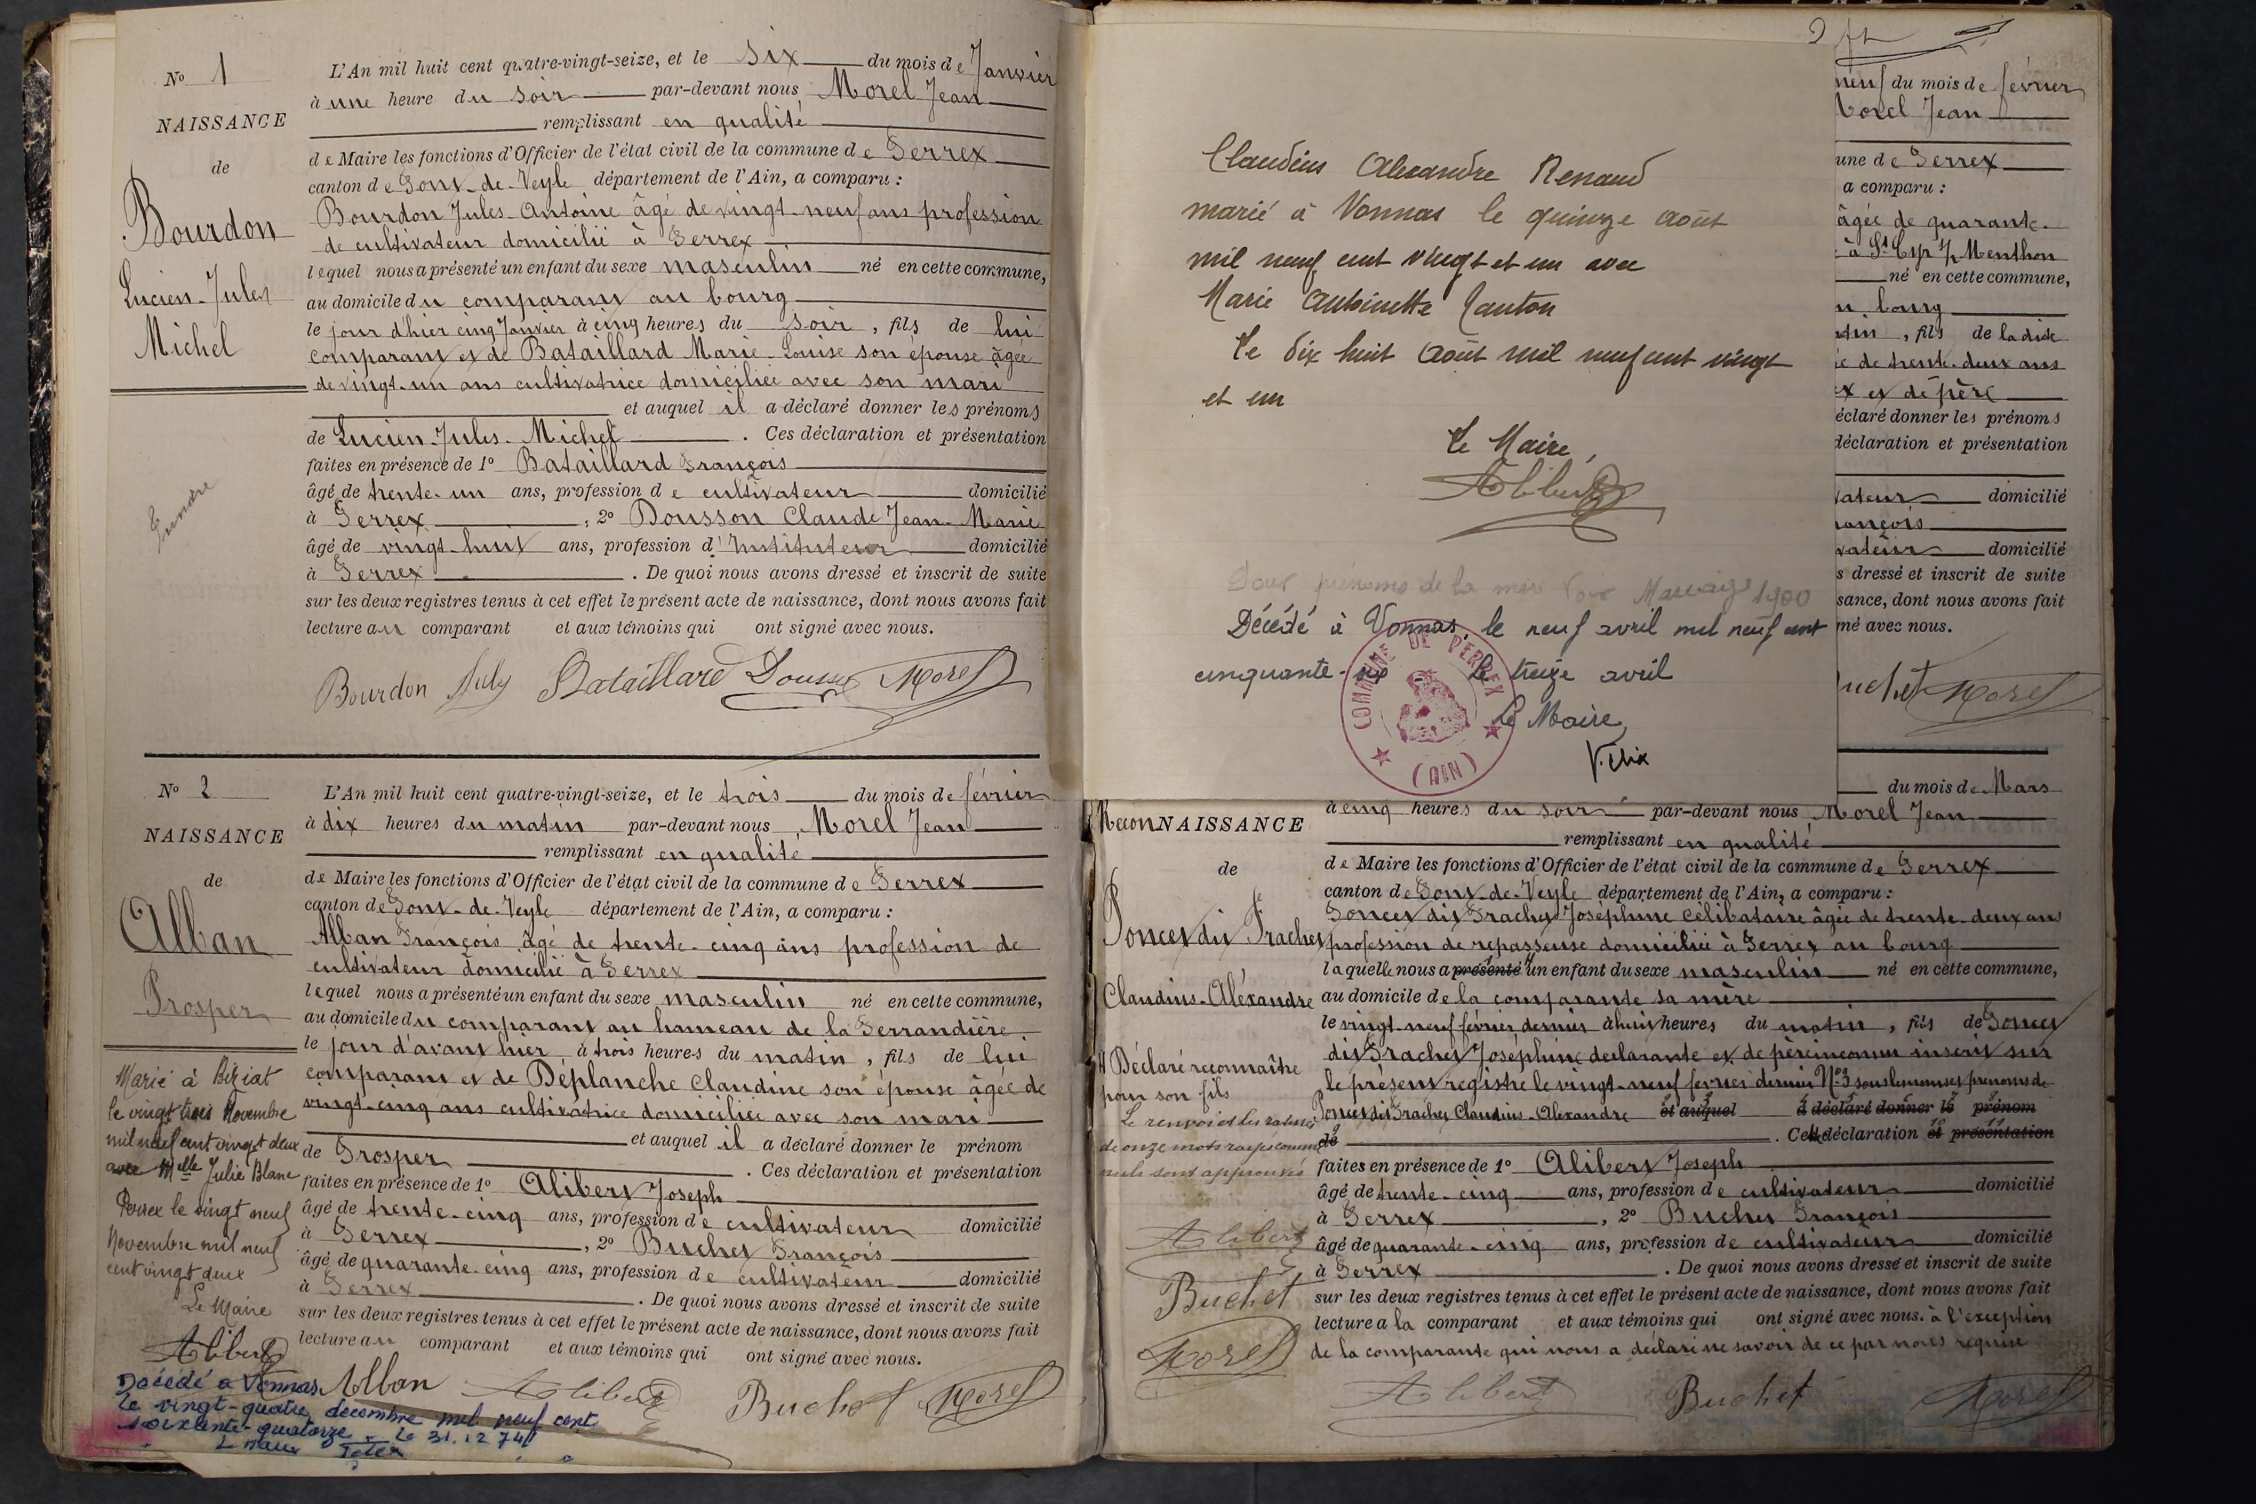 N° 1
NAISSANCE
de
Bourdon
Lucien-Jules
Michel
L'An mil huit cent quatre-vingt-seize, et le six du mois de Janvier
à une heure du soir par-devant nous Morel Jean
remplissant en qualité
de Maire les fonctions d'Officier de l'état civil de la commune de Perrex
canton de Pont-de-Veyle département de l'Ain, a comparu :
Bourdon Jules-Antoine âgé de vingt-neuf ans profession
de cultivateur domicilié à Perrex
lequel nous a présenté un enfant du sexe masculin né en cette commune,
au domicile du comparant au bourg
le jour d'hier cinq Janvier à cinq heures du soir, fils de lui
comparant et de Bataillard Marie-Louise son épouse âgée
de vingt-un ans cultivatrice domiciliée avec son mari
et auquel il a déclaré donner les prénoms
de Lucien-Jules-Michel. Ces déclaration et présentation
faites en présence de 1° Bataillard François
âgé de trente-un ans, profession de cultivateur domicilié
à Perrex, 2° Dousson Claude Jean-Marie
âgé de vingt-huit ans, profession d'Instituteur domicilié
à Perrex. De quoi nous avons dressé et inscrit de suite
sur les deux registres tenus à cet effet le présent acte de naissance, dont nous avons fait
lecture au comparant et aux témoins qui ont signé avec nous.
Bourdon July Bataillard Dousson Morel
N° 2
NAISSANCE
de
Alban
Prosper
L'An mil huit cent quatre-vingt-seize, et le trois du mois de février
à dix heures du matin par-devant nous, Morel Jean
remplissant en qualité
de Maire les fonctions d'Officier de l'état civil de la commune de Perrex
canton de Pont-de-Veyle département de l'Ain, a comparu :
Alban François âgé de trente-cinq ans profession de
cultivateur domicilié à Perrex
lequel nous a présenté un enfant du sexe masculin né en cette commune,
au domicile du comparant au hameau de la Perrandière
le jour d'avant hier, à trois heures du matin, fils de lui
comparant et de Déplanche Claudine son épouse âgée de
vingt-cinq ans cultivatrice domiciliée avec son mari
et auquel il a déclaré donner le prénom
de Prosper. Ces déclaration et présentation
faites en présence de 1° Alibert Joseph
âgé de trente-cinq ans, profession de cultivateur domicilié
à Perrex, 2° Buchet François
âgé de quarante-cinq ans, profession de cultivateur domicilié
à Perrex. De quoi nous avons dressé et inscrit de suite
sur les deux registres tenus à cet effet le présent acte de naissance, dont nous avons fait
lecture au comparant et aux témoins qui ont signé avec nous.
Alban Alibert Buchet Morel
Marié à Biziat
le vingt trois Novembre
mil neuf cent vingt deux
avec Melle Julie Blanc
Perrex le vingt neuf
Novembre mil neuf
cent vingt deux
Le Maire
Alibert
Décédé à Vonnas
le vingt-quatre décembre mil neuf cent
soixante-quatorze. Le 31.12.74
Claudius Alexandre Renaud
marié à Vonnas le quinze août
mil neuf cent vingt et un avec
Marie Antoinette Janton
Le dix huit août mil neuf cent vingt
et un
Le Maire,
Alibert
prénoms de la mère 1900
Décédé à Vonnas, le neuf avril mil neuf cent
cinquante-six - Le treize avril
Le Maire,
COMMUNE DE PERREX
(AIN)
neuf du mois de février
Morel Jean
une de Perrex
a comparu :
âgée de quarante-
à St Cyr s/ Menthon
né en cette commune,
u bourg
tin, fils de la dite
e de trente-deux ans
x et de père
éclaré donner les prénoms
déclaration et présentation
vateur domicilié
rançois
vateur domicilié
s dressé et inscrit de suite
sance, dont nous avons fait
né avec nous.
uchet Morel
du mois de Mars
à cinq heures du soir par-devant nous Morel Jean
ReconNAISSANCE
de
Poncet dit Frachet
Claudius-Aléxandre
remplissant en qualité
de Maire les fonctions d'Officier de l'état civil de la commune de Perrex
canton de Pont-de-Veyle département de l'Ain, a comparu :
Poncet dit Frachet Joséphine célibataire âgée de trente-deux ans
profession de repasseuse domiciliée à Perrex au bourg
laquelle nous a présenté un enfant du sexe masculin né en cette commune,
au domicile de la comparante sa mère
le vingt-neuf février dernier à huit heures du matin, fils de Poncet
dit Frachet Joséphine déclarante et de père inconnu inscrit sur
le présent registre le vingt-neuf février dernier N° 3 sous les noms et prénoms de
Poncet dit Frachet Claudius-Alexandre et auquel a déclaré donner le prénom
de. Cette déclaration et présentation
faites en présence de 1° Alibert Joseph
âgé de trente-cinq ans, profession de cultivateur domicilié
à Perrex, 2° Buchet François
âgé de quarante-cinq ans, profession de cultivateur domicilié
à Perrex. De quoi nous avons dressé et inscrit de suite
sur les deux registres tenus à cet effet le présent acte de naissance, dont nous avons fait
lecture a la comparant et aux témoins qui ont signé avec nous. à l'exception
de la comparante qui nous a déclaré ne savoir de ce par nous requise
Alibert Buchet Morel
# Déclaré reconnaître
pour son fils
Le renvoi et les ratures
de onze mots rayés comme
nuls sont approuvés
Alibert
Buchet
Morel